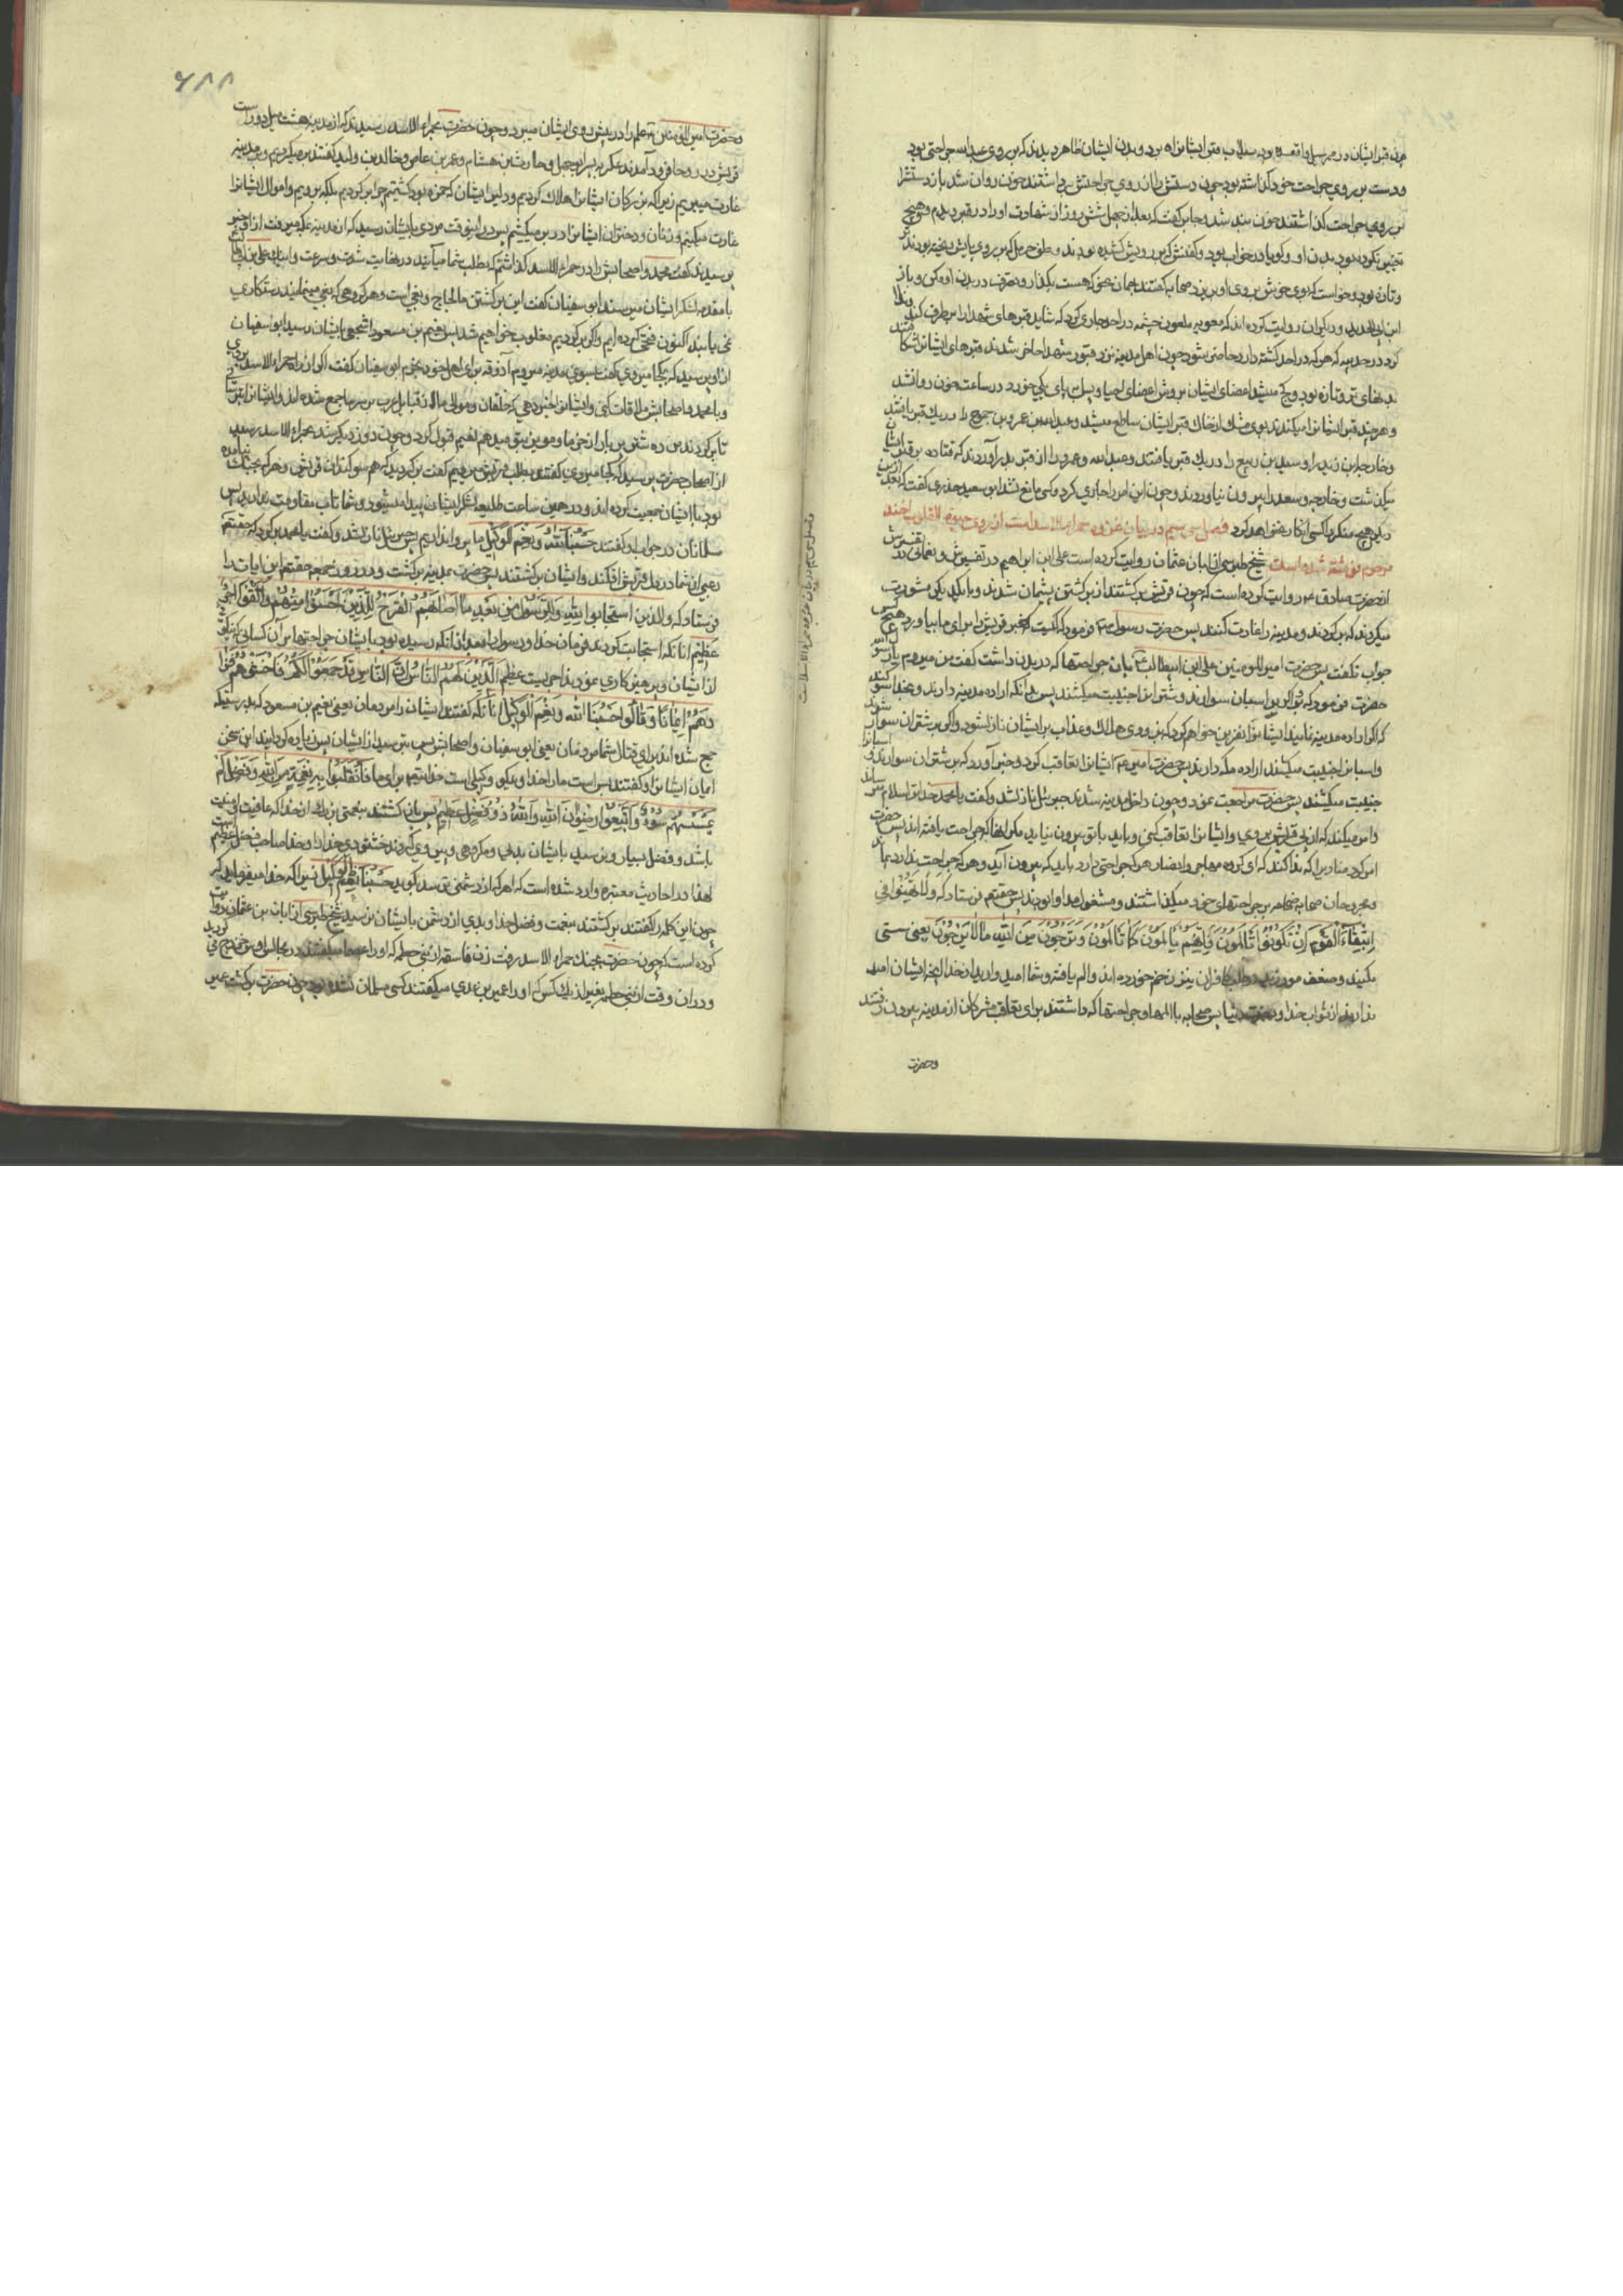 ودست بر روی جراحت خود گذاشته بود چون دستش را از روی جراحتش برداشتند خون روان شد باز دستش را
بر روی جراحت گذاشتند خون بند شد و جابر گفت که بعد از چهل شش روز از شهادت او را در قبر دیدم و هیچ
تغییر نکرده بود بدن او و گویا در خواب بود و کفنش که بر رویش کشیده بودند و علف حرمل که بر روی پایش ریخته بودند
وتازه بود و خواست که بوی خوش بر روی او بریزد صحابه گفتند بهمان نحو که هست بگذار و تصرف در بدن او مکن و باز
ابن ابی الحدید و دیگران روایت کرده اند که معویه ملعون چشمه در احد جاری کرد که شاید قبرهای شهدا را برطرف کند و ندا
کرد در مدینه که هر که در احد کشته دارد حاضر شود چون اهل مدینه نزد قبور شهدا حاضر شدند و قبرهای ایشانرا شکافتند
بدنهای تر و تازه بود و کج میشد اعضای ایشان بروش اعضای احیا و بیل بر پای یکی خورد در ساعت خون روانشد
وهر چند قبر ایشانرا میکندند بوی مشک از خاک قبر ایشان ساطع میشد و عبدالله بن عمرو بن جموح را در یک قبر یافتند
وخارجه ابن زید را و سعد بن ربیع را در یک قبر یافتند و عبدالله و عمرو را از قبر بدر آوردند که قناة بر قبر ایشان
میگذشت و خارجه و سعد را بیرون نیاوردند و چون این امر را جاری کرد و کسی مانع نشد ابو سعید خدری گفت که بعد از این
دیگر هیچ منکر را کسی انکار نخواهد کرد فصل سی سیم در بیان غزوه حمراء الاسد است از روی حیوة القلوب آخند
مرحوم نوشته شده است شیخ طبرسی از ابان بن عثمان روایت کرده است و علی ابن ابراهیم در تفسیرش و نعمانی در تفسیرش
از حضرت صادق ع روایت کرده است که چون قریش برگشتند از برگشتن پشیمان شدند و با یکدیگر مشورت
میکردند که برگردند و مدینه را غارت کنند پس حضرت رسول ص فرمود که کیست که خبر قریش را برای ما بیاورد هیچکس
جواب نگفت پس حضرت امیر المومنین علی ابن ابیطالب ع با آن جراحتها که در بدن داشت گفت من میروم یا رسول الله
حضرت فرمود که برو اگر بر اسبان سوارند و شتران را جنیبت میکشند پس بدانکه اراده مدینه دارند و بخدا سوگند
که اگر اراده مدینه نمایند ایشانرا نفرین خواهم کرد که بزودی هلاک و عذاب بر ایشان نازل شود و اگر بر شتران سوار شوند
واسبانرا جنیبت میکشند اراده مکه دارند پس حضرت امیر ع ایشانرا تعاقب کرد و خبر آورد که بر شتران سوارند و اسبانرا
جنیبت میکشند پس حضرت مراجعت نمود و چون داخل مدینه شدند جبرئیل نازلشد و گفت یا محمد خدایترا سلام میرساند
وامر میکند که از پی قریش بروی و ایشانرا تعاقب کنی و باید با تو بیرون نیاید مگر آنها که جراحت یافته اند پس حضرت
امر کرد منادی را که ندا کند که ای گروه مهاجر و انصار هر که جراحتی دارد باید که بیرون آید و هر که جراحت ندارد بماند
ومجروحان صحابه ضمادها بر جراحتهای خود میگذاشتند و مشغول مداوا بودند پس حقتعم فرستاد که ولا تهنوا فی
ابتغاء القوم ان تکونوا تألمون فانهم یألمون کما تألمون وترجون من الله ما لا یرجون یعنی سستی
مکنید و ضعف مورزید در طلب کافران نیز زخم خورده اند و الم یافته و شما امید دارید از خدا آنچه ایشان امید
ندارند از ثواب خدا و پس صحابه با المها و جراحتها که داشتند برای تعاقب مشرکان از مدینه بیرون رفتند
وحضرت
فصل سی سیم در بیان غزوه حمراء الاسد است
۶۸۸
وحضرت امیر المومنین ع علم را در پیش روی ایشان میبرد و چون حضرت بحمراء الاسد رسیدند که از مدینه هشت میل دور است
قریش در روحا فرود آمدند عکرمه پسر ابو جهل و حارث بن هشام و عمرو بن عاص و خالد بن ولید گفتند بر میگردیم و مدینه
غارت میبریم زیرا که بزرگان ایشانرا هلاک کردیم و دلیر ایشان که حمزه بود کشتیم چرا برگردیم بلکه برویم و اموال ایشانرا
غارت میکنیم و زنان و دختران ایشانرا در بر میکشیم پس در اینوقت مردی بایشان رسید که از مدینه بمکه میرفت از او خبر
پرسیدند گفت محمد و اصحابش را در حمراء الاسد گذاشتم که بطلب شما میآیند در نهایت شدت و سرعت و اینک علی بن ابیطالب
با مقدمه لشکر ایشان میرسند ابو سفیان گفت این برگشتن ما لجاج و بغی است و هر گروهی که بغی مینمایند رستکاری
نمی یابند اکنون فتح کرده ایم و اگر برگردیم مغلوب خواهیم شد پس نعیم بن مسعود اشجعی بایشان رسید ابو سفیان
از او پرسید که بکجا میروی گفت بسوی مدینه میروم آذوقه برای اهل خود بخرم ابو سفیان گفت اگر از راه حمراء الاسد بروی
وبا محمد و اصحابش ملاقات کنی و ایشانرا خبر دهی که حلفان و موالی ما از قبایل عرب بر سر ما جمع شده اند و ایشانرا بترسانی
تا برگردند من ده شتر پر بار از خرما و مویز بتو میدهم نعیم قبول کرد و چون روز دیگر شد بحمراء الاسد رسید
از اصحاب حضرت پرسید که بکجا میروی گفتند بطلب قریش میرویم گفت برگردید که هم سوگندان قریش و هر که بجنگ نیامده
بود با ایشان جمعیت کرده اند و در همین ساعت طلیعه لشکر ایشان پیدا میشود و شما تاب مقاومت ندارید پس
مسلمانان در جواب او گفتند حسبنا الله ونعم الوکیل ما پروا نداریم پس جبرئیل نازلشد و گفت یا محمد برگرد که حقتعم
رعبی از شما در دل قریش افکند و ایشان برگشتند پس حضرت بمدینه برگشت و در روز جمعه حقتعم این آیات را
فرستاد که والذین استجابوا لله والرسول من بعد ما اصابهم القرح للذین احسنوا منهم واتقوا اجر
عظیم آنانکه استجابت کردند فرمان خدا و رسول را بعد از آنکه رسیده بود بایشان جراحتها برای آن کسانیکه نیکوئی
از ایشان و پرهیزکاری نمودند اجریست عظیم الذین قال لهم الناس ان الناس قد جمعوا لکم فاخشوهم فزا
دهم ایمانا وقالوا حسبنا الله ونعم الوکیل آنانکه گفتند ایشان را مردمان یعنی نعیم بن مسعود که بدرستیکه
جمع شده اند برای قتال شما مردمان یعنی ابو سفیان و اصحابش پس بترسید از ایشان پس زیاده گردانید این سخن
ایمان ایشانرا و گفتند بس است ما را خدا و نیکو وکیلی است خدایتعم برای ما فانقلبوا بنعمة من الله وفضل لم
یمسسهم سوء واتبعوا رضوان الله والله ذو فضل عظیم پس باز گشتند بنعمتی بزرگ از خدا که عافیت و امنیت
باشد و فضل بسیار و نرسید بایشان بدی و مکروهی و پیروی کردند خشنودی خدا را و خدا صاحب فضل عظیم است
لهذا در احادیث معتبره وارد شده است که هر که از دشمنی ترسد بگوید حسبنا الله ونعم الوکیل زیرا که خدا میفرماید که
چون این کلمه را گفتند برگشتند بنعمت و فضل خدا و بدی از دشمن بایشان نرسید شیخ طبرسی از ابان بن عثمان روایت
کرده است که چون حضرت بجنگ حمراء الاسد رفت زن فاسقه از بنی خطمه که او را عصما میگفتند در مجالس اوس و خزرج می گردید
ودر آن وقت از بنی خطمه بغیر از یک کس که او را عمیر بن عدی میگفتند کسی مسلمان نشده بود چون حضرت برگشت عمیر